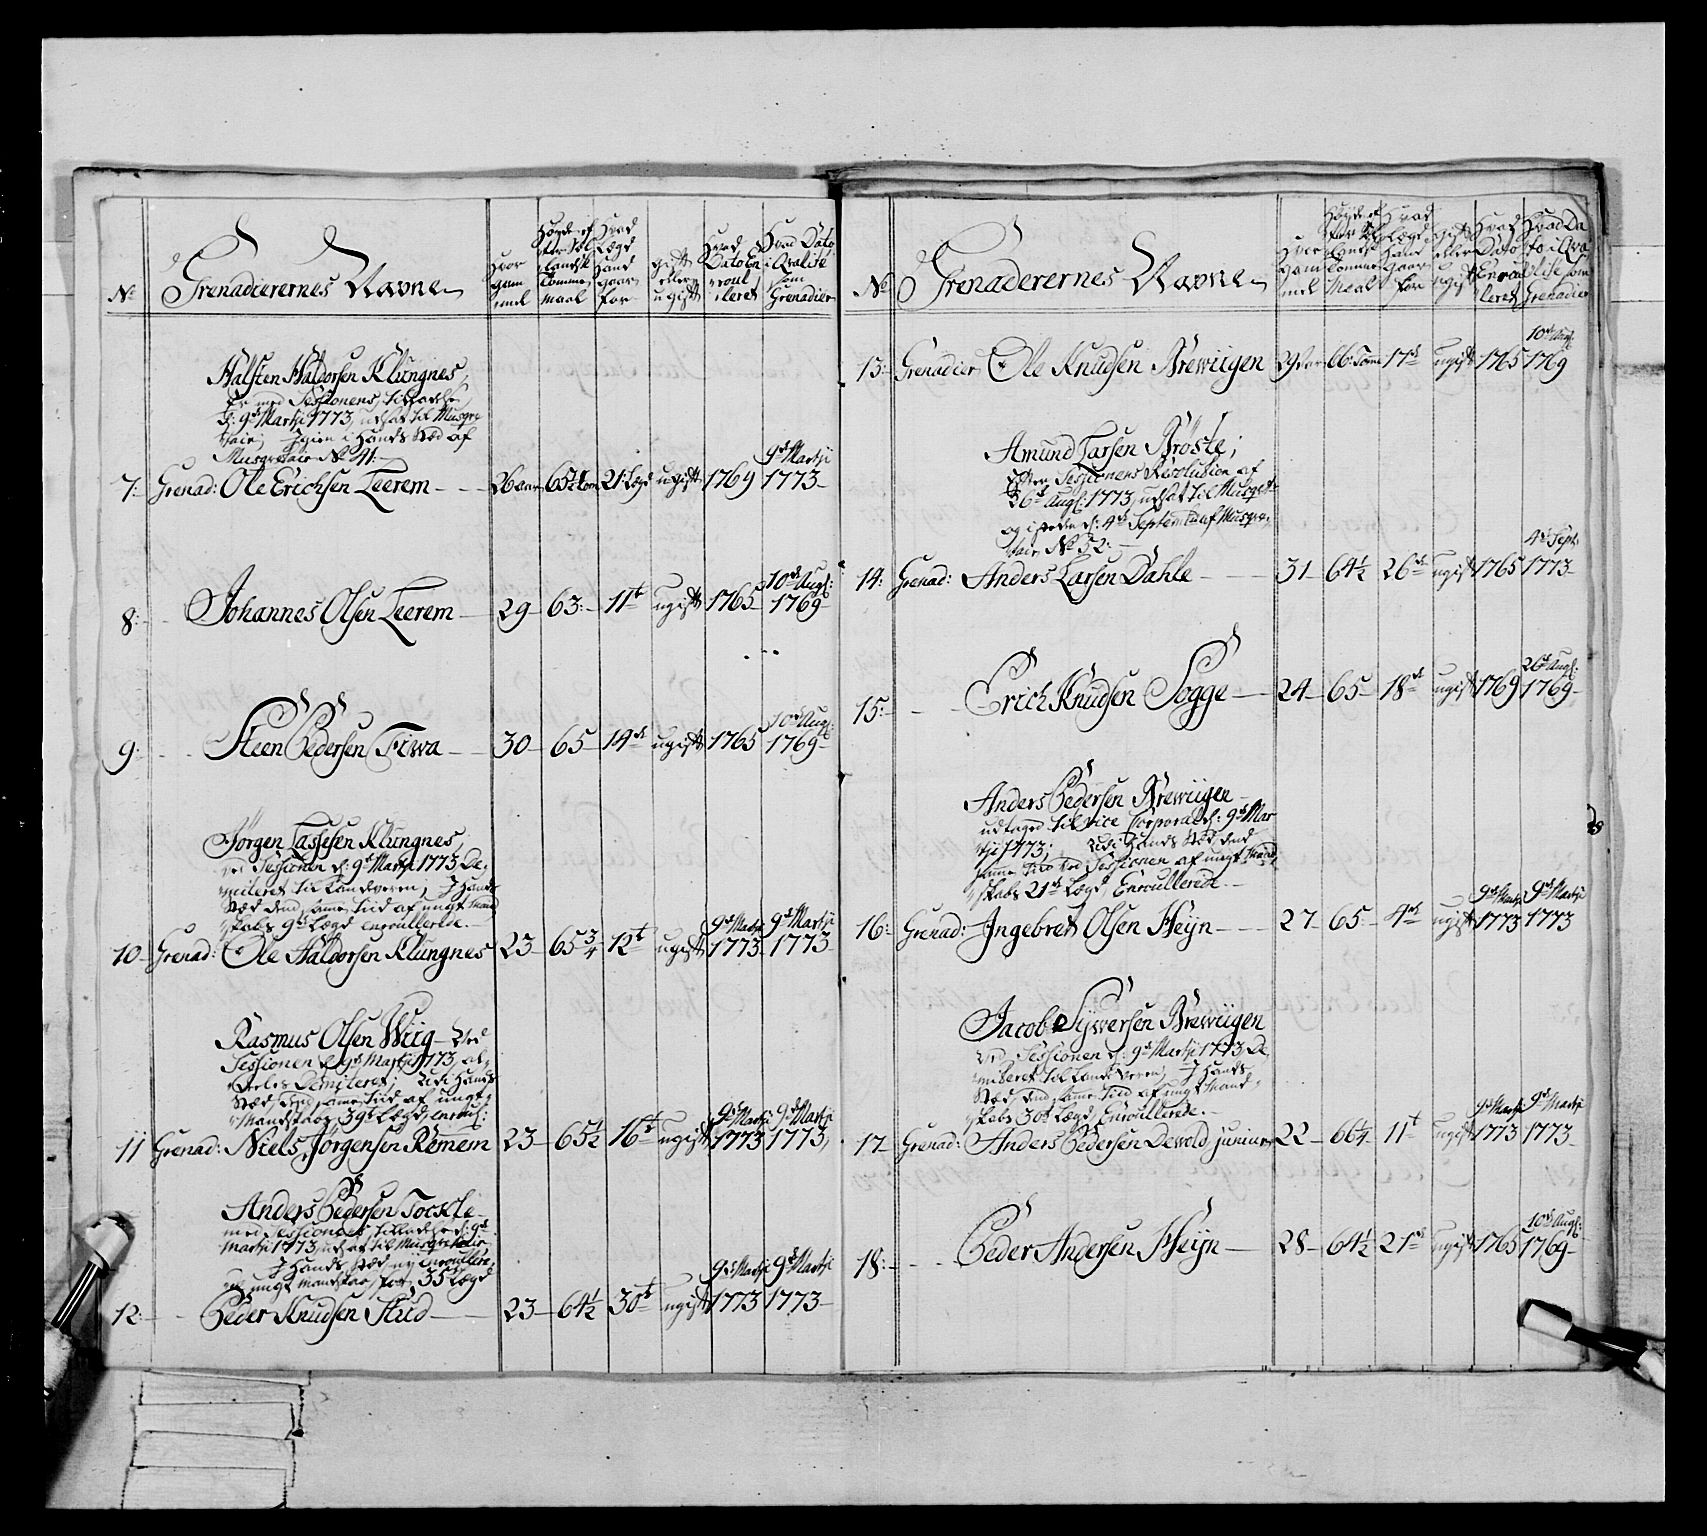 No
Grenadierernes Navne
Hvor
gam
mel
Høyde ef
ter Sel
landsk
Tomme
Maal
Hvad
Lægd
Hand
gaar
for
gift
eller
ugift
Hvad
Dato En
roul
leret
Hvad Dato
i Qvalité
som
Grenadier
Halsten Haldorsen Klungnes,
Er med Sessionens tilladelse,
d: 9d Martji 1773, udsat til Musqve
tair; Igien i Hands Stæd af
Musqvetair No 41:
7: Grenad: Ole Erichsen Leerem 26 aar 65 Tom 21 Lægd ugift 1769 9d Martji 1773
8: Johannes Olsen Leerem 29 63: 11t ugift 1765 10d Augl: 1769
9: Steen Pedersen Fiwa 30 65 14d ugift 1765 10d Augl: 1769
Jørgen Lassesen Klungnes,
ved Sessionen d: 9d Martji 1773 De,
miteret til Landværn, I Hands
Stæd dend same Tiid af ungt Mand
skabs 9d Lægd enroullerede.
10 Grenad: Ole Haldorsen Klungnes 23 65 3/4 12t ugift 9d Martji 1773 9d Martji 1773
Rasmus Olsen Wiig ved
Sessionen d 9d Martji 1773, al,
deeles Dimiteret; udi Hands
Stæd, dend same Tiid af ungt
Mandskab, 39t Lægd, enroul:
11 Grenad: Niels Jørgensen Remem 23 65 1/2 16t ugift 9d Martji 1773 9d Martji 1773
Anders Pedersen Tockle
med Sessionens tilladelse d: 9d
Martji 1773, udsat til Musqvetair
I Hands Stæd ny enroullere,
ungt Mandskab, for 35 Lægd
12: Peder Knudsen Stud 23 64 1/2 30t ugift 9d Martji 1773 9d Martji 1773
No
Grenaderernes Navne
Hvor
gam
mel
Høyde ef
ter Sel
landsk
Tomme
Maal
Hvad
Lægd
Hand
gaar
for
gift
eller
ugift
Hvad
Dato
Enroul
leret
Hvad Da
to i Qva
lite som
Grenadier
13: Grenadier Ole Knudsen Brewiigen 29 aar 66: Tome 17d ugift 1765 10d Augl: 1769
Amund Larsen Brøste;
Efter Sessionens Resolution af
26d Augl: 1773, udsat til Musqvet
og isteden d: 4d Septemb af Musqve,
tair No 32:
14: Grenad: Anders Larsen Dahle 31 64 1/2 26d ugift 1765 4d Septr 1773
15: Erich Knudsen Sogge 24 65 18d ugift 1769 26d Augl: 1769
Anders Pedersen Brewiigen
udtaged til Vice Corporal d: 9d Mar
tji 1773; udi Hands Stæd dend
same Tiid ved Sessionen af ungt Mand
skabs 21d Lægd, Enroullerede.
16: Grenad: Ingebret Olsen Heyn 27 65 4d ugift 9d Martji 1773 9d Martji 1773
Jacob Sywersen Brewiigen
ved Sessionen d: 9d Martji 1773 De,
miteret til Landværen, I Hands
Stæd, dend same Tiid af ungt Mand,
skabs 30d Lægd, Enroullerede.
17 Grenad: Anders Pedersen Dewold junior 22 66 1/4 11t ugift 9d Martji 1773 9d Martji 1773
18: Peder Andersen Heyn 28 64 1/2 21d ugift 1765 10d Augl: 1769